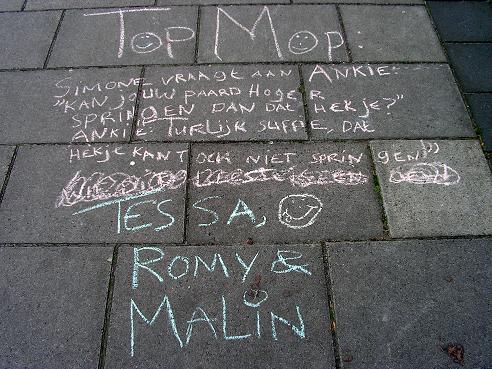 TOP MOP:
SIMONE VRAAGT AAN ANKIE:
"KAN JOUW PAARD HOGER
SPRINGEN DAN DAT HEKJE?"
ANKIE: TURLIJK SUFFIE, DAT
HEKJE KANT OOK NIET SPRINGEN!"
TESSA,
ROMY &
MALIN